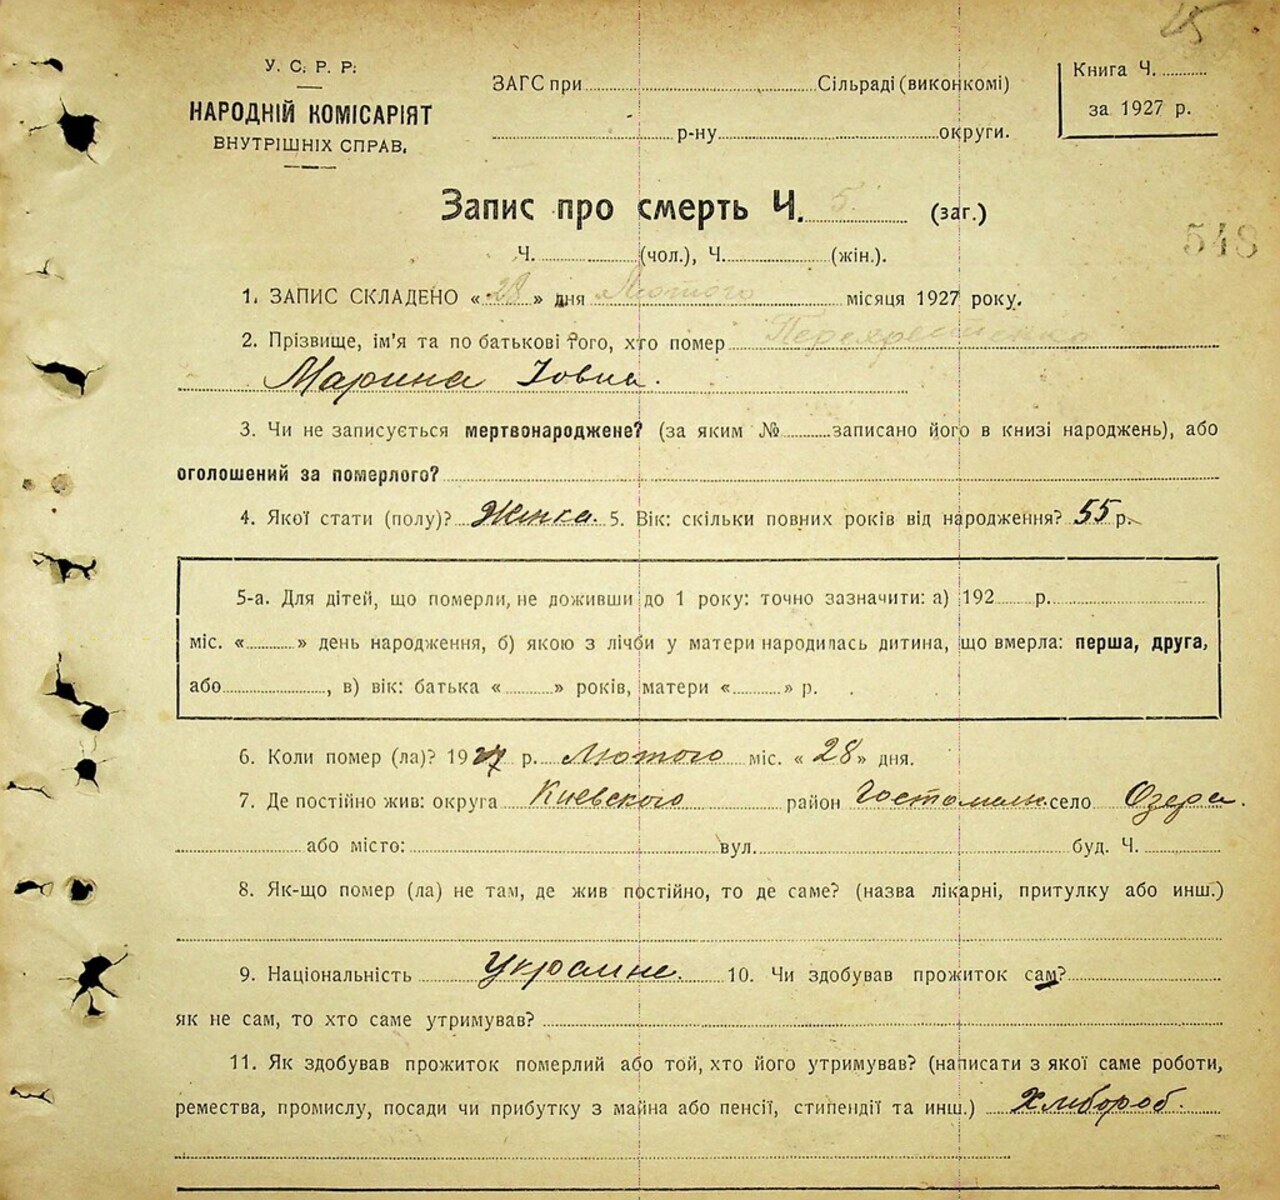 45
У. С. Р. Р.
НАРОДНІЙ КОМІСАРІЯТ
ВНУТРІШНІХ СПРАВ.
ЗАГС при Сільраді (виконкомі)
р-ну округи.
Книга Ч.
за 1927 р.
Запис про смерть Ч. 5. (заг.)
548
Ч. (чол.), Ч. (жін.).
1. ЗАПИС СКЛАДЕНО « 28 » дня Лютого місяця 1927 року.
2. Прізвище, ім'я та по батькові того, хто помер
Марина Іовна.
3. Чи не записується мертвонароджене? (за яким № записано його в книзі народжень), або
оголошений за померлого?
4. Якої стати (полу)? Жінка. 5. Вік: скільки повних років від народження? 55 р.
5-а. Для дітей, що померли, не доживши до 1 року: точно зазначити: а) 192 р.
міс. « » день народження, б) якою з лічби у матери народилась дитина, що вмерла: перша, друга,
або , в) вік: батька « » років, матери « » р.
6. Коли помер (ла)? 1927 р. Лютого міс. « 28 » дня.
7. Де постійно жив: округа Киевского район Гостомильс. село Озера.
або місто: вул. буд. Ч.
8. Як-що помер (ла) не там, де жив постійно, то де саме? (назва лікарні, притулку або инш.)
9. Національність Украине. 10. Чи здобував прожиток сам?
як не сам, то хто саме утримував?
11. Як здобував прожиток померлий або той, хто його утримував? (написати з якої саме роботи,
ремества, промислу, посади чи прибутку з майна або пенсії, стипендії та инш.) Хлібороб.